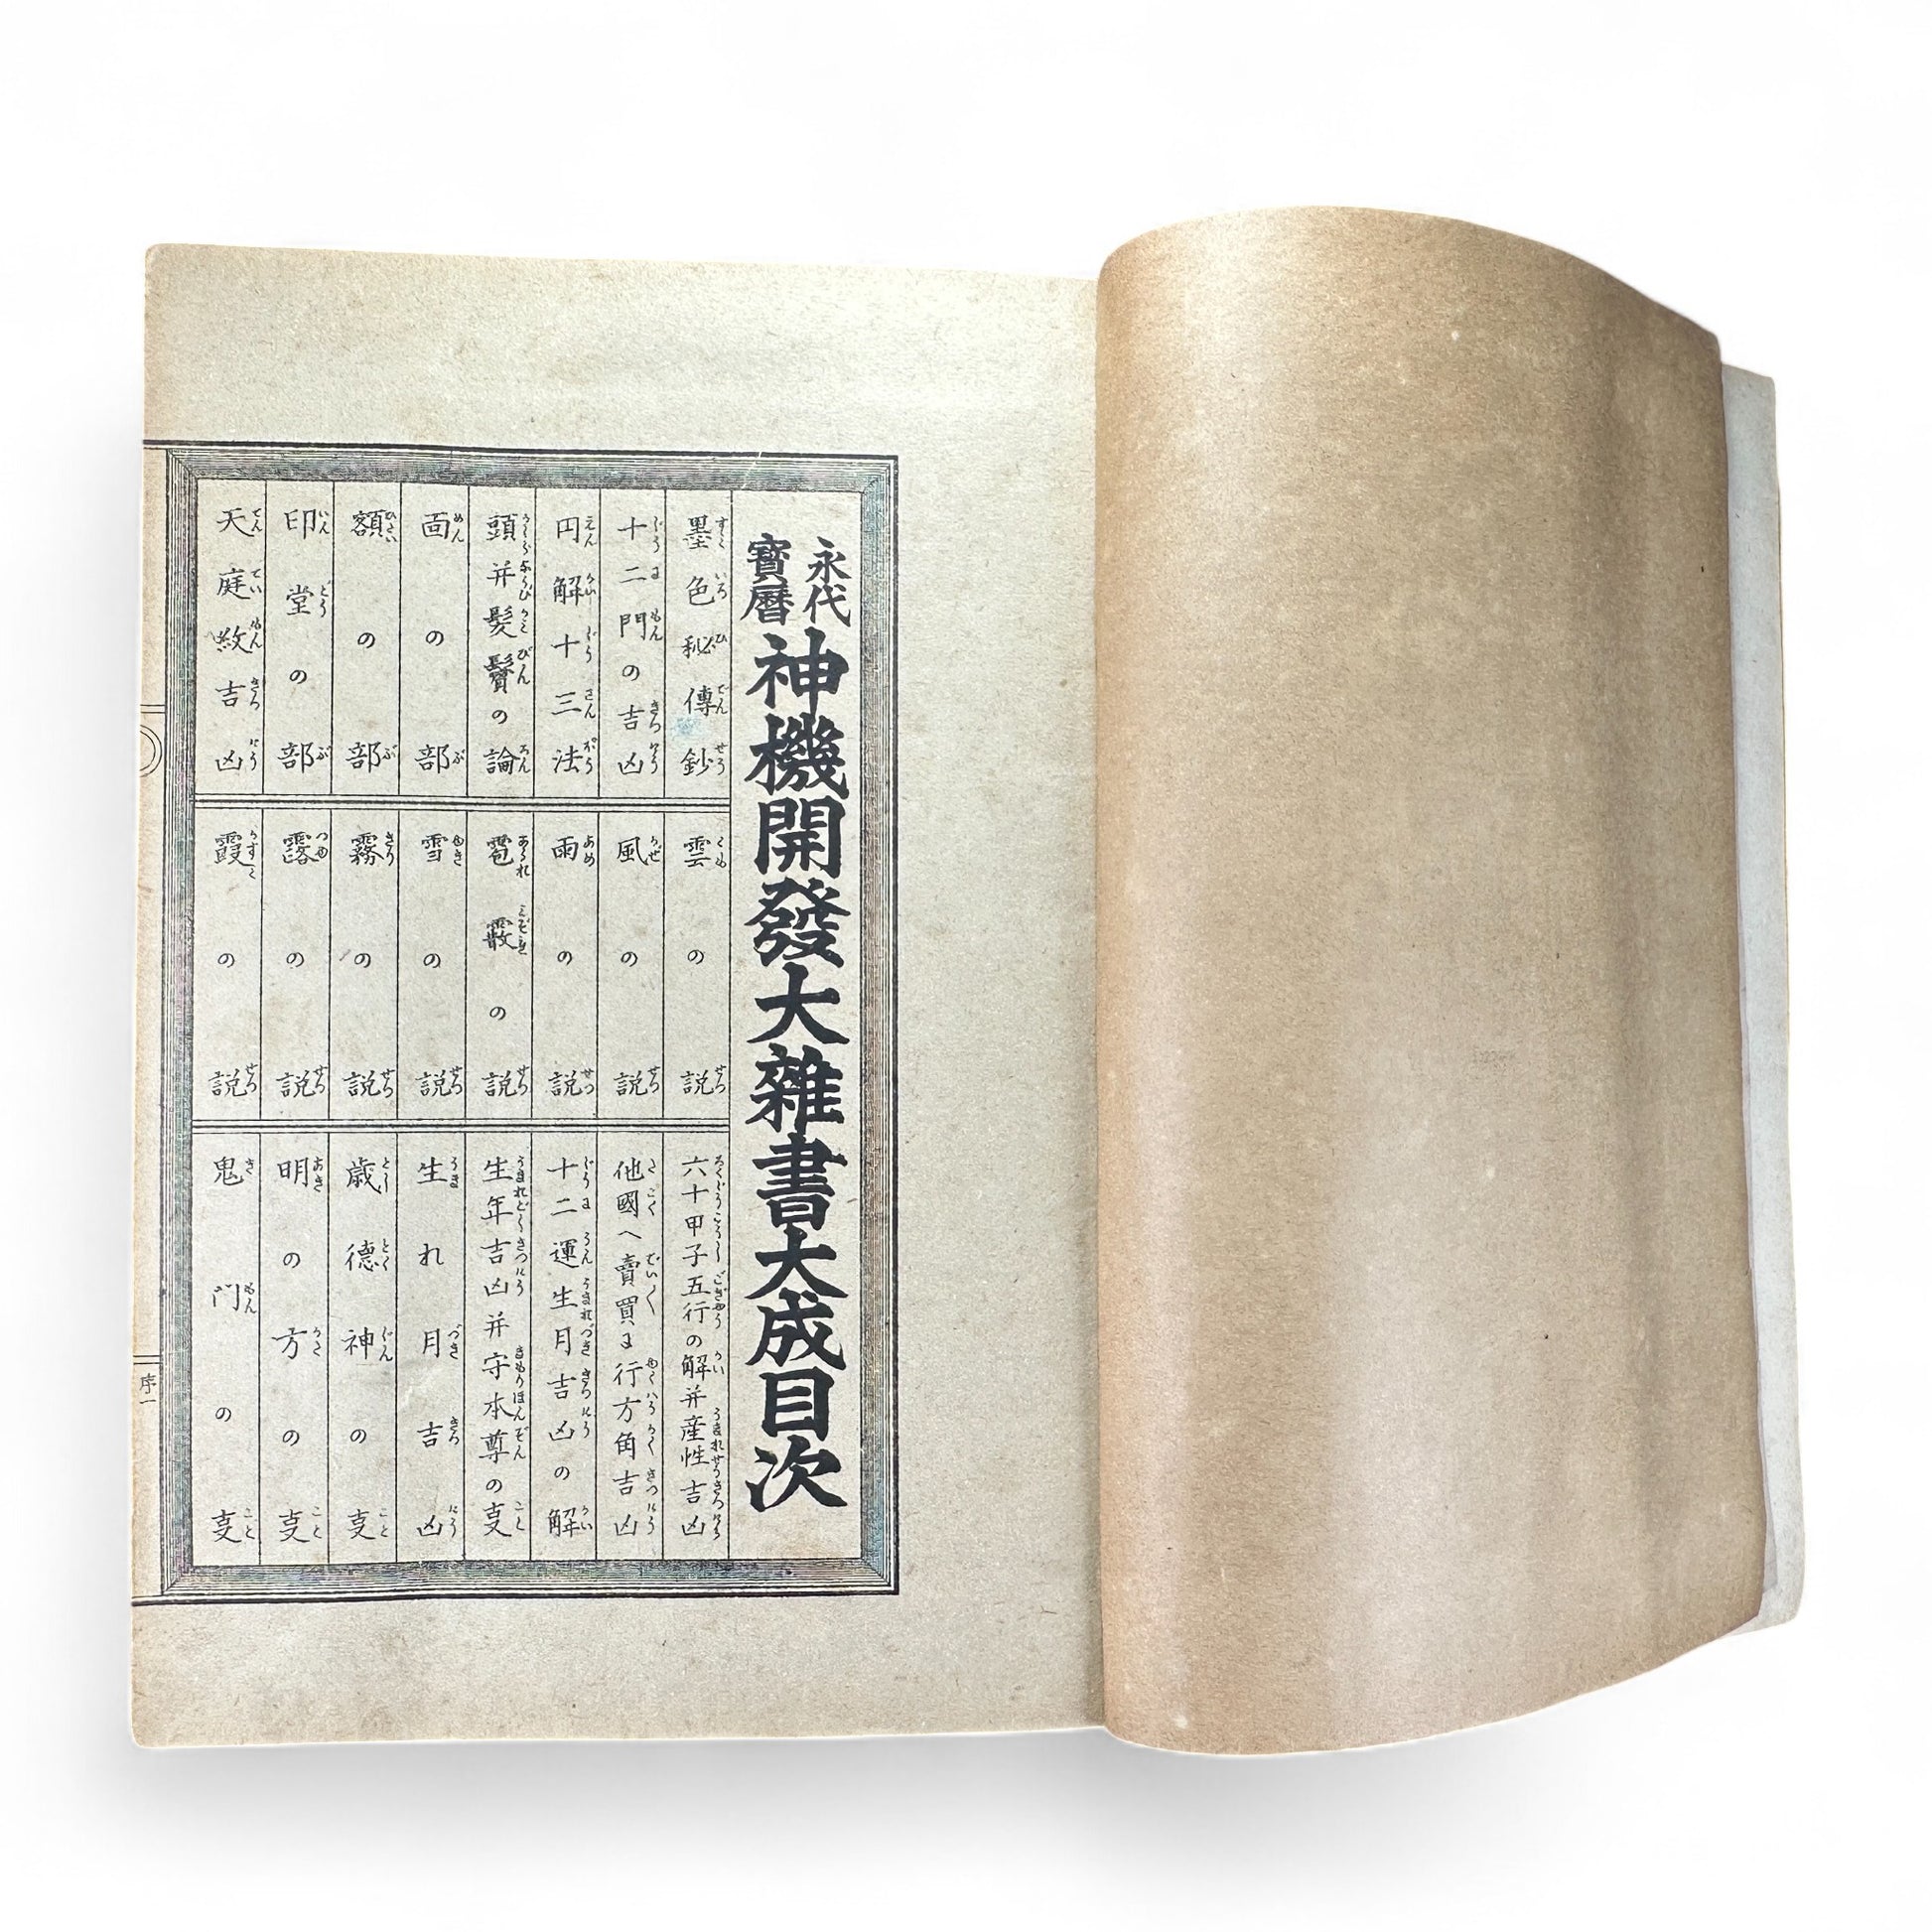 永代
寳暦
神機開發大雜書大成目次
墨色秘傳鈔
十二門の吉凶
円解十三法
頭并髪鬢の論
面の部
額の部
印堂の部
天庭紋吉凶
雲の説
風の説
雨の説
雹霰の説
雪の説
霧の説
露の説
霞の説
六十甲子五行の解并産性吉凶
他國へ賣買に行方角吉凶
十二運生月吉凶の解
生年吉凶并守本尊の叓
生れ月吉凶
歳德神の叓
明の方の叓
鬼門の叓
序一